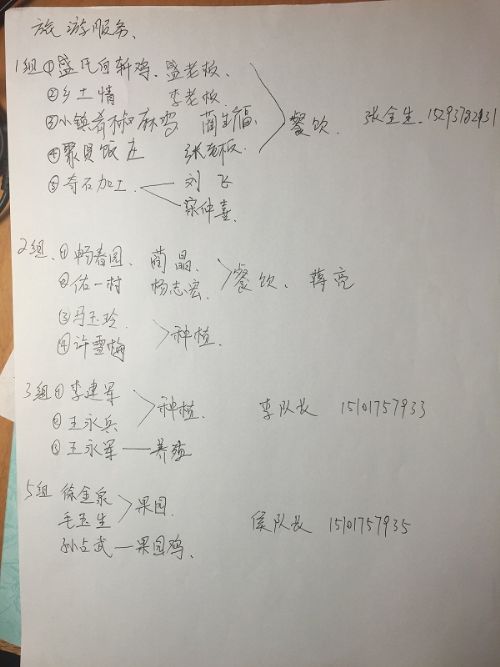 旅游服务、
1组 ①盛氏白斩鸡、盛老板、
②乡土情 李老板、
③小镇香椒麻鸡 蔺主福、 餐饮、 张金生、15293782431
④聚贤饭庄 张老板、
⑤奇石加工 刘飞
仲喜、
2组、①畅春园、 蔺晶、
②佑一村 杨志宏、 餐饮、 蒋亮
③马玉玲、 种植、
④许雪梅
3组 ①李建军 种植、 李队长 15101757933
②王永兵
③王永军——养殖
5组 徐金泉 果园、
毛玉生 侯队长 15101757935
孙占武——果园鸡、